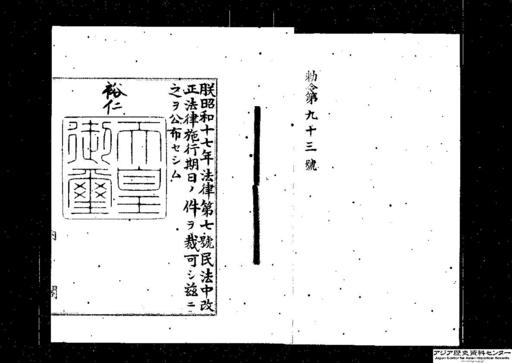 勅令第九十三號
朕昭和十七年法律第七號民法中改
正法律施行期日ノ件ヲ裁可シ茲ニ
之ヲ公布セシム
裕仁
天皇
御璽
内閣
アジア歴史資料センター
Japan Center for Asian Historical Records